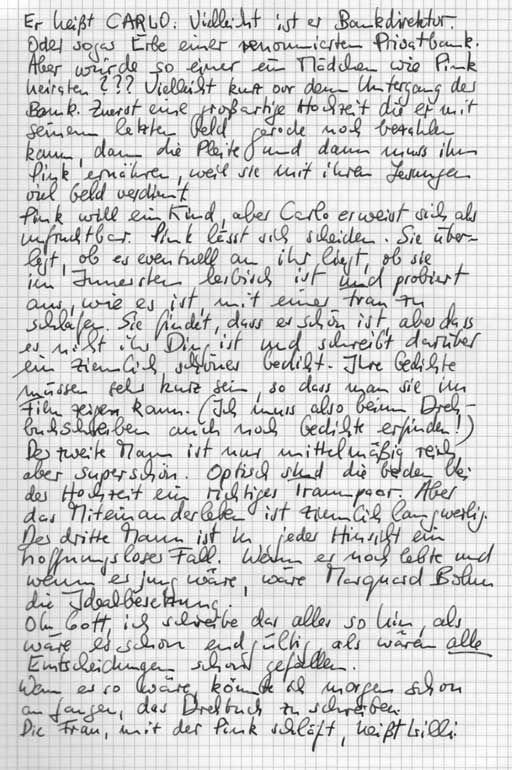 Er heißt CARLO. Vielleicht ist er Bankdirektor.
Oder sogar Erbe einer renommierten Privatbank.
Aber würde so einer ein Mädchen wie Pink
heiraten ??? Vielleicht kurz vor dem Untergang der
Bank. Zuerst eine großartige Hochzeit die er mit
seinem letzten Geld gerade noch bezahlen
kann, dann die Pleite und dann muss ihn
Pink ernähren, weil sie mit ihren Lesungen
viel Geld verdient.
Pink will ein Kind, aber Carlo erweist sich als
unfruchtbar. Pink lässt sich scheiden. Sie über-
legt, ob es eventuell an ihr liegt, ob sie
im Innersten lesbisch ist und probiert
aus, wie es ist, mit einer Frau zu
schlafen. Sie findet, dass es schön ist, aber dass
es nicht ihr Ding ist und schreibt darüber
ein ziemlich schönes Gedicht. Ihre Gedichte
müssen sehr kurz sein, so dass man sie im
Film zeigen kann. (Ich muss also beim Dreh-
buchschreiben auch noch Gedichte erfinden!)
Der zweite Mann ist nur mittelmäßig reich,
aber superschön. Optisch sind die beiden bei
der Hochzeit ein richtiges Traumpaar. Aber
das Miteinanderleben ist ziemlich langweilig.
Der dritte Mann ist in jeder Hinsicht ein
hoffnungsloser Fall. Wenn er noch lebte und
wenn er jung wäre, wäre Marquard Bohm
die Idealbesetzung.
Oh Gott, ich schreibe das alles so hin, als
wäre es schon endgültig, als wären alle
Entscheidungen schon gefallen.
Wenn es so wäre, könnte ich morgen schon
anfangen, das Drehbuch zu schreiben.
Die Frau, mit der Pink schläft, heißt